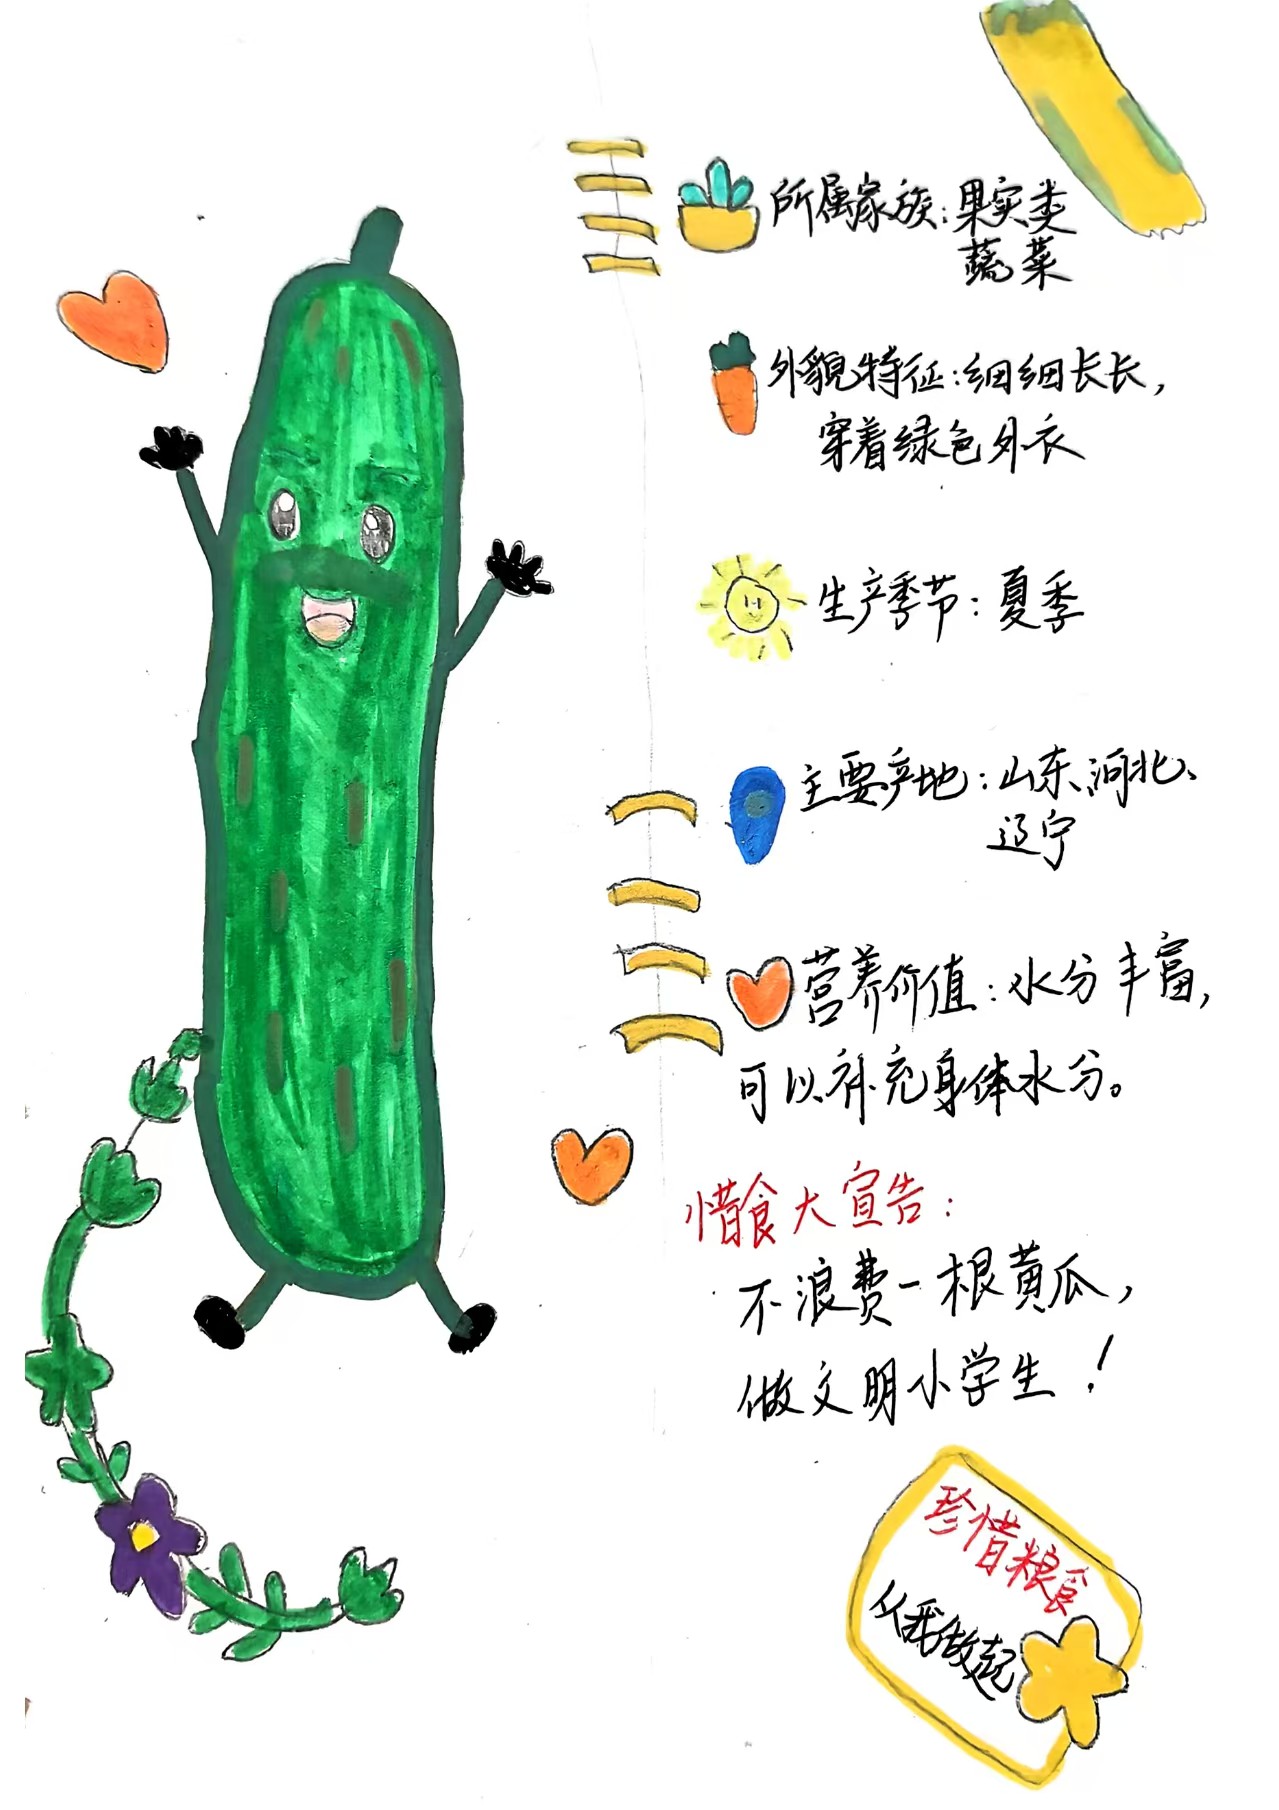 所属家族:果实类
蔬菜
外貌特征:细细长长,
穿着绿色外衣
生产季节:夏季
主要产地:山东、河北、
辽宁
营养价值:水分丰富,
可以补充身体水分。
惜食大宣告:
不浪费一根黄瓜,
做文明小学生!
珍惜粮食
从我做起